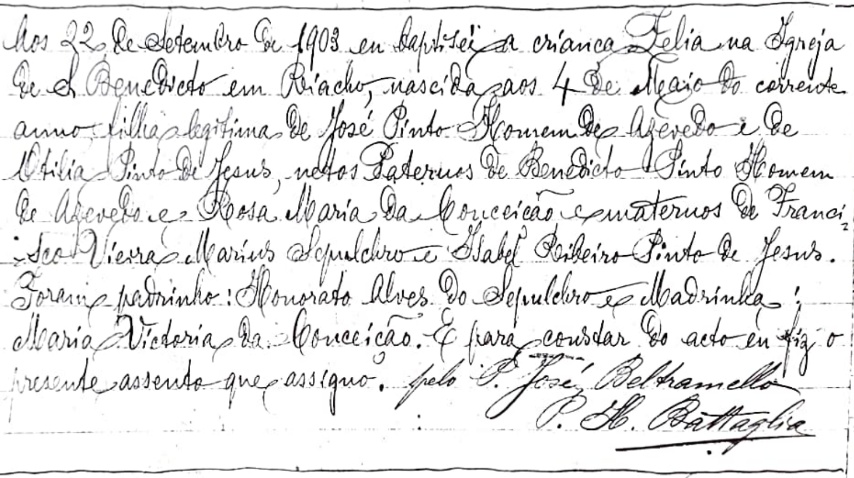 Aos 22 de Setembro de 1903 eu baptisei a crianca Felia na Igreja
de S. Benedicto em Riacho, nascida aos 4 de Maio do corrente
anno, filha legitima de José Pinto Homem de Azevedo e de
Otilia Pinto de Jesus, netos Paternos de Benedicto Pinto Homem
de Azevedo e Rosa Maria da Conceição e maternos de Franci-
sco Vieira Marius Sepulchro e Isabel Ribeiro Pinto de Jesus.
Foram padrinho: Honorato Alves do Sepulchro e Madrinha:
Maria Victoria da Conceição. E para constar do acto eu fiz o
presente assento que assigno. pelo P. José Beltramello
P. H. Battaglia